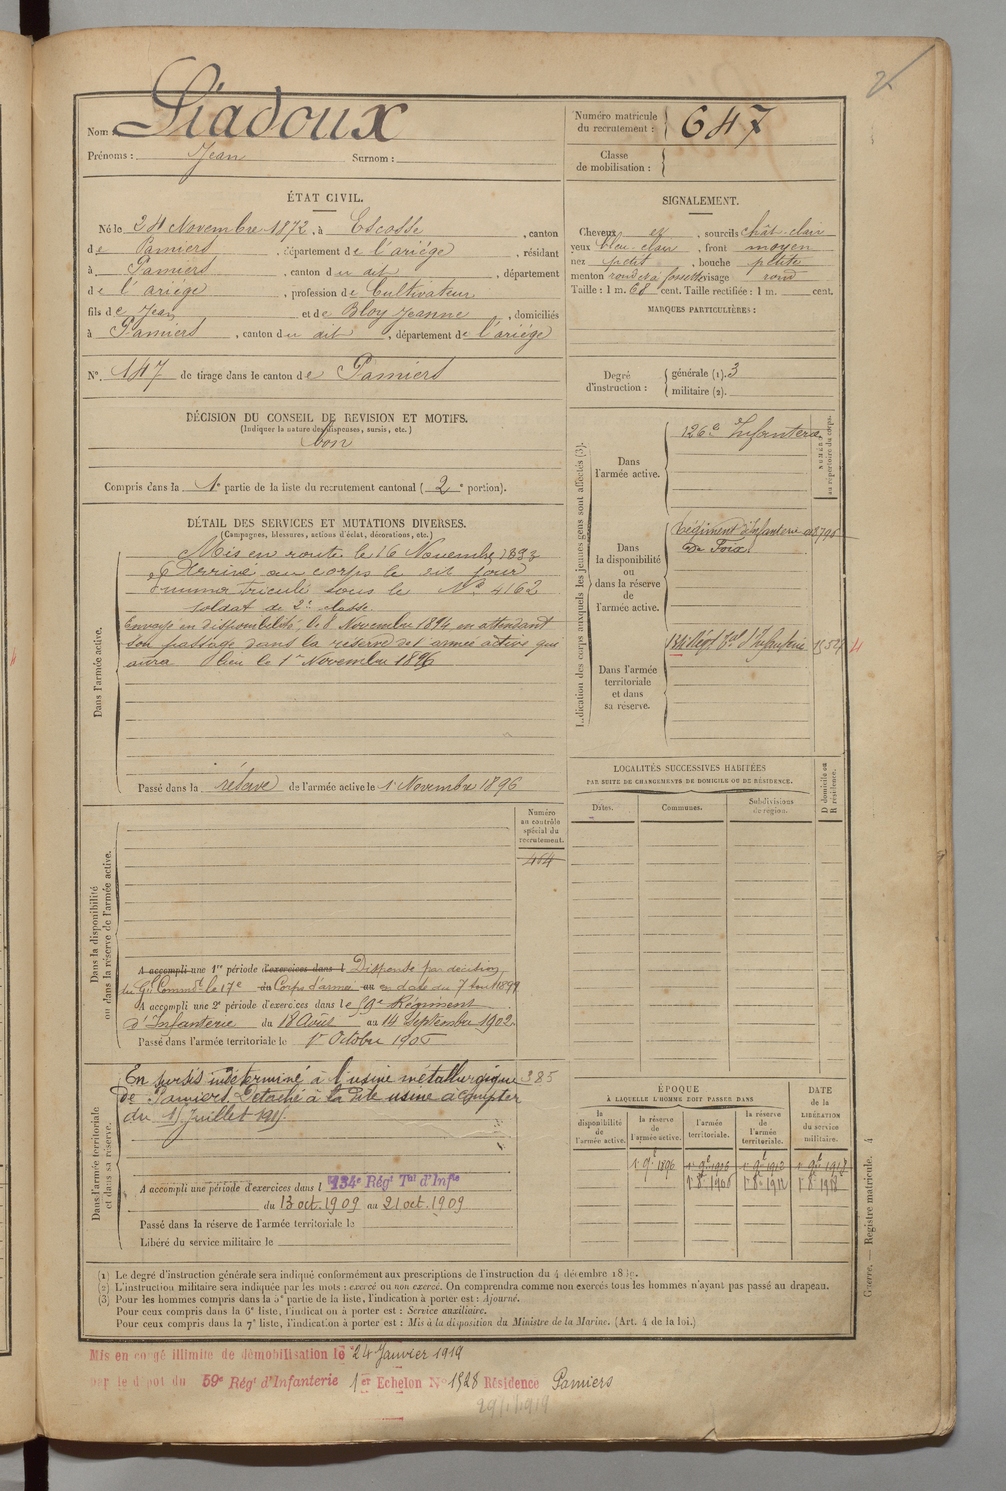 Nom : Liadoux
Prénoms : Jean Surnom :
Numéro matricule du recrutement : 647
Classe de mobilisation :
ÉTAT CIVIL.
Né le 24 Novembre 1872, à Escosse, canton
de Pamiers, département de l'ariége, résidant
à Pamiers, canton du dit, département
de l'ariége, profession de Cultivateur
fils de Jean et de Bloy Jeanne, domiciliés
à Pamiers, canton du dit, département de l'ariége
N°. 147 de tirage dans le canton de Pamiers
SIGNALEMENT.
Cheveux et, sourcils chât. clair
yeux bleu clair, front moyen
nez petit, bouche petite
menton rond et à fossette visage rond
Taille : 1 m. 68 cent. Taille rectifiée : 1 m. cent.
MARQUES PARTICULIÈRES :
Degré d'instruction : générale (1). 3
militaire (2).
DÉCISION DU CONSEIL DE REVISION ET MOTIFS.
(Indiquer la nature des dispenses, sursis, etc.)
bon
Compris dans la 1e partie de la liste du recrutement cantonal ( 2e portion).
DÉTAIL DES SERVICES ET MUTATIONS DIVERSES.
(Campagnes, blessures, actions d'éclat, décorations, etc.)
Dans l'armée active.
Mis en route le 16 Novembre 1893
Arrivé au corps le dit jour
immatriculé sous le N° 4162
soldat de 2e classe.
Envoyé en disponibilité le 8 Novembre 1894 en attendant
son passage dans la réserve de l'armée active qui
aura lieu le 1er Novembre 1896
Passé dans la réserve de l'armée active le 1r Novembre 1896
Indication des corps auxquels les jeunes gens sont affectés (3).
NUMÉRO au répertoire du corps.
Dans l'armée active.
126e Infanterie
Dans la disponibilité ou dans la réserve de l'armée active.
Régiment d'Infanterie
de Foix
Dans l'armée territoriale et dans sa réserve.
134 Régt Tal d'Infanterie
LOCALITÉS SUCCESSIVES HABITÉES
PAR SUITE DE CHANGEMENTS DE DOMICILE OU DE RÉSIDENCE.
Dates. Communes. Subdivisions de région. D domicile ou R résidence.
Dans la disponibilité ou dans la réserve de l'armée active.
Numéro au contrôle spécial du recrutement.
464
A accompli une 1re période d'exercices dans l Dispensé par décision
du Gl Commdt le 17e du Corps d'armée au en date du 7 Aout 1899
A accompli une 2e période d'exercices dans le 59e Régiment
d'Infanterie du 18 Août au 14 Septembre 1902.
Passé dans l'armée territoriale le 1r Octobre 1906
Dans l'armée territoriale et dans sa réserve.
En sursis indéterminé à l'usine métallurgique 385
de Pamiers. Détaché à la dite usine à compter
du 15 Juillet 1915.
A accompli une période d'exercices dans l 134e Régt Tal d'Infie
du 13 oct. 1909 au 21 oct. 1909
Passé dans la réserve de l'armée territoriale le
Libéré du service militaire le
ÉPOQUE
À LAQUELLE L'HOMME DOIT PASSER DANS
la disponibilité de l'armée active.
la réserve de l'armée active.
l'armée territoriale.
la réserve de l'armée territoriale.
DATE de la LIBÉRATION du service militaire.
(1) Le degré d'instruction générale sera indiqué conformément aux prescriptions de l'instruction du 4 décembre 1889.
(2) L'instruction militaire sera indiquée par les mots : exercé ou non exercé. On comprendra comme non exercés tous les hommes n'ayant pas passé au drapeau.
(3) Pour les hommes compris dans la 5e partie de la liste, l'indication à porter est : Ajourné.
Pour ceux compris dans la 6e liste, l'indication à porter est : Service auxiliaire.
Pour ceux compris dans la 7e liste, l'indication à porter est : Mis à la disposition du Ministre de la Marine. (Art. 4 de la loi.)
Guerre. — Registre matricule. 4
Mis en congé illimité de démobilisation le 24 Janvier 1919
par le dépôt du 59e Régt d'Infanterie 1er Echelon N° 1928 Résidence Pamiers